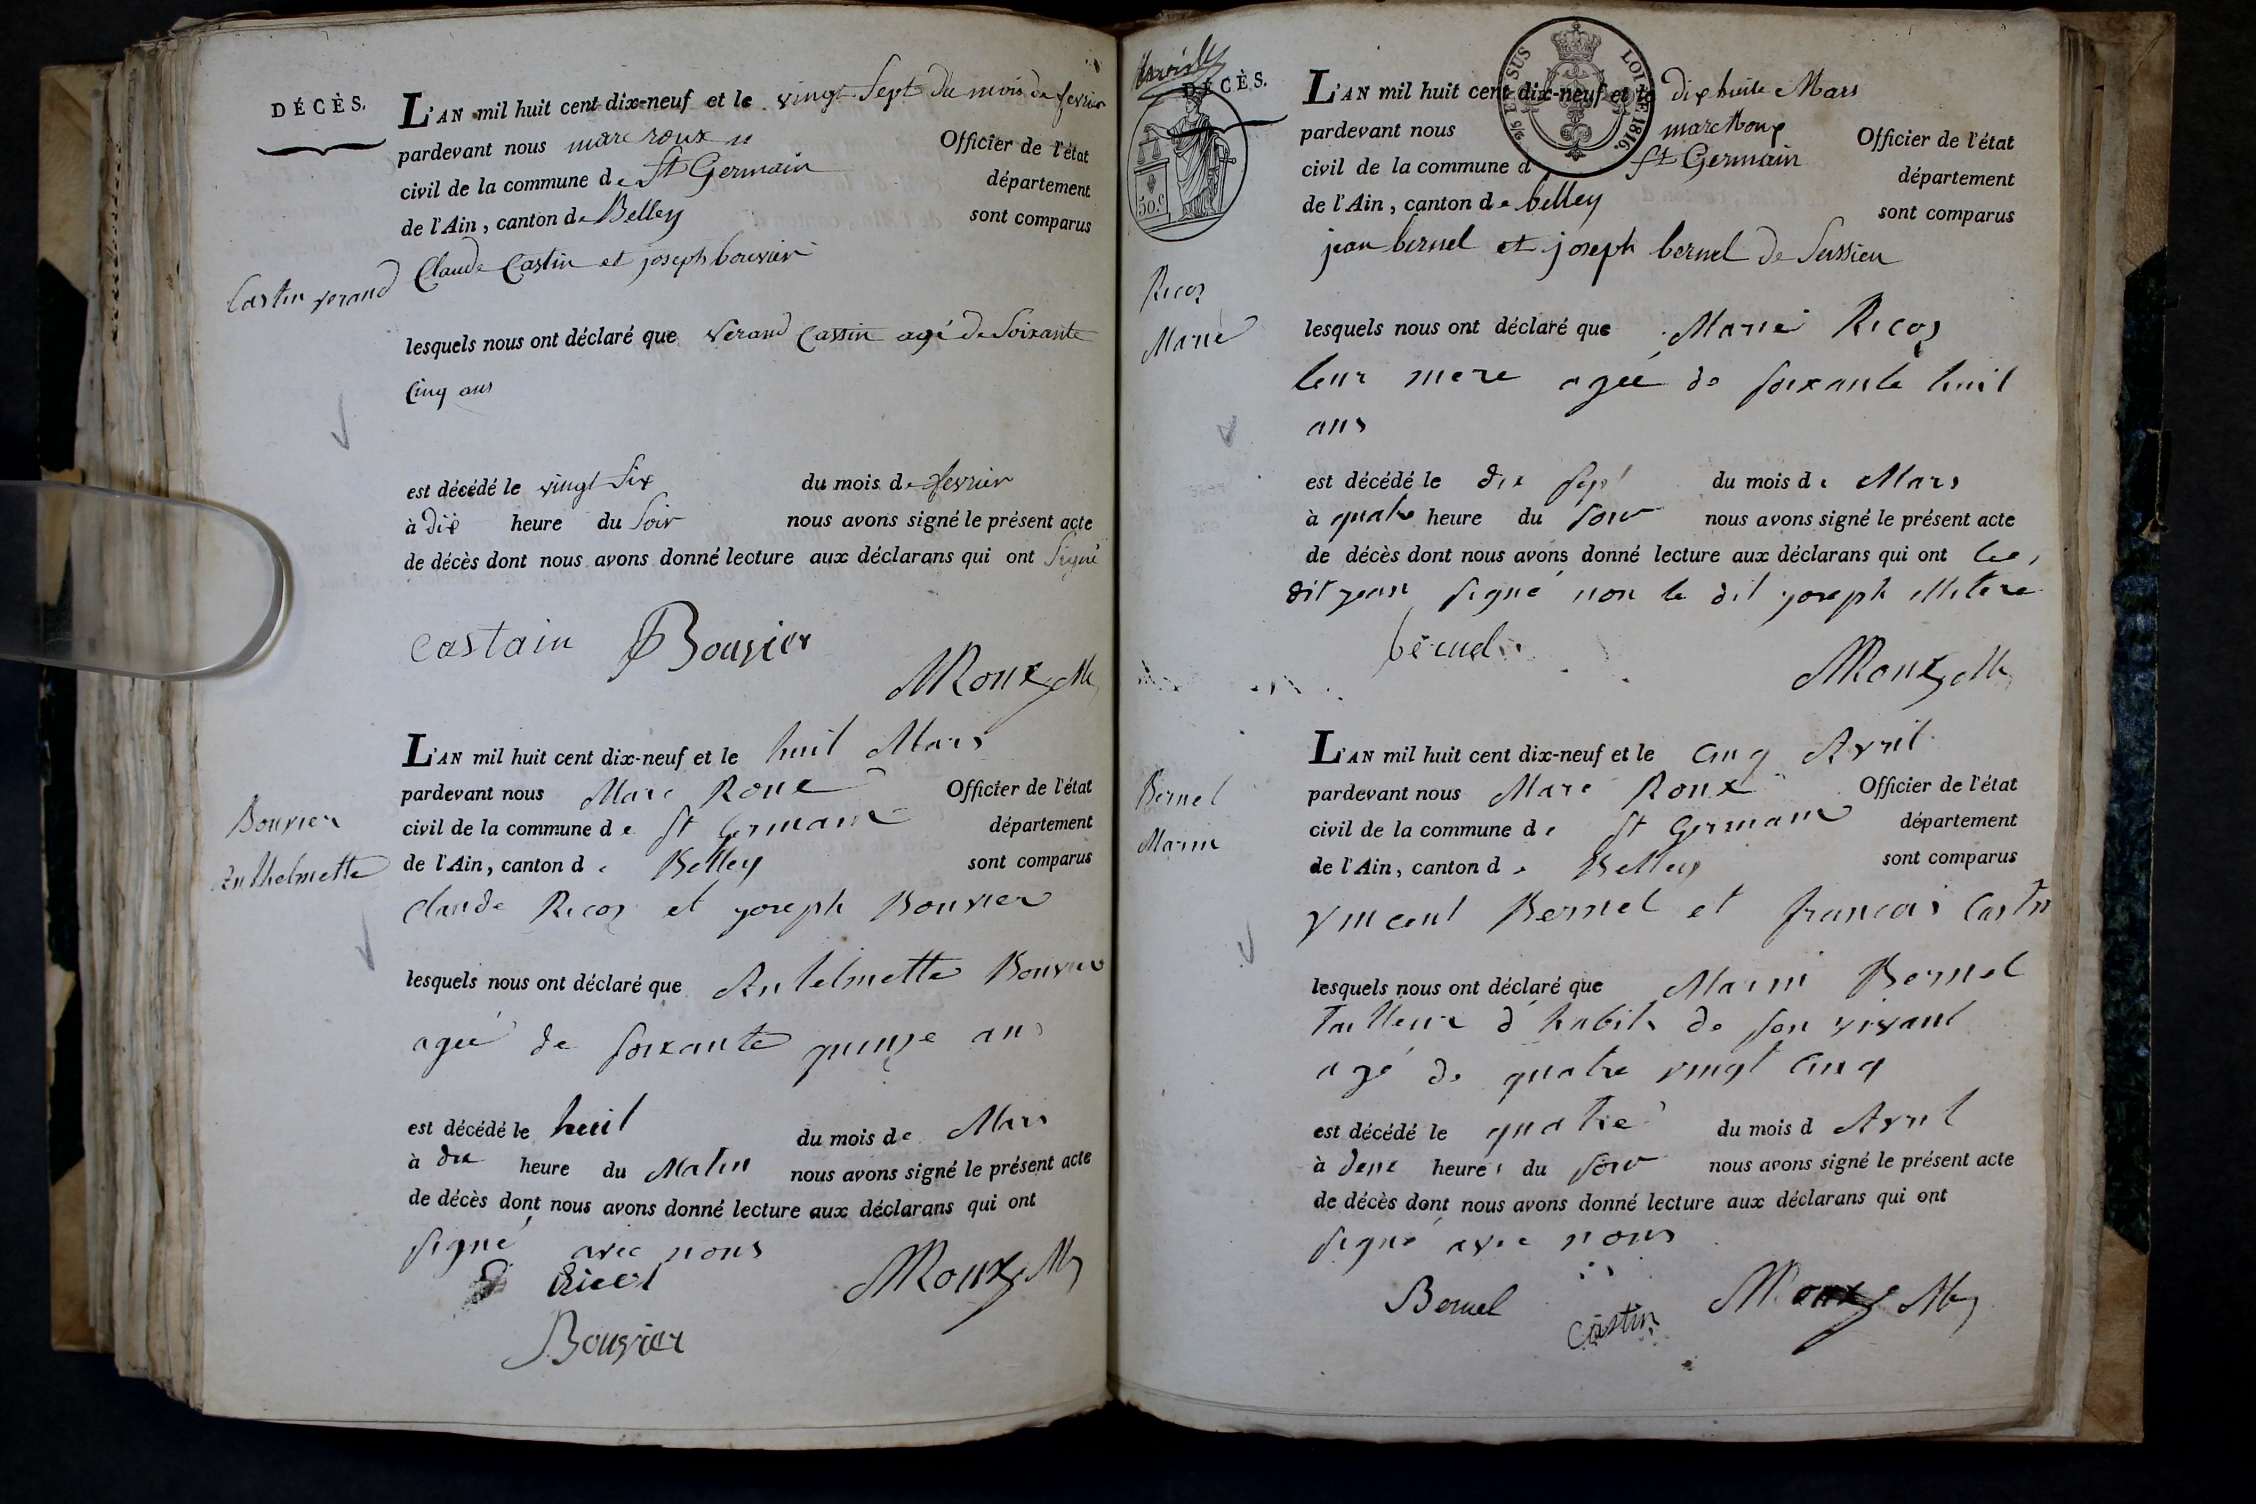 DÉCÈS.
L'AN mil huit cent dix-neuf et le vingt Sept du mois de fevrier
pardevant nous marc roux Officier de l'état
civil de la commune de St Germain département
de l'Ain, canton de Belley sont comparus
Claude Castin et joseph bouvier
Castin verand
lesquels nous ont déclaré que verand Castin agé de Soixante
Cinq ans
est décédé le vingt Six du mois de fevrier
à dix heure du Soir nous avons signé le présent acte
de décès dont nous avons donné lecture aux déclarans qui ont Signé
Castain Bouvier
MRoux
L'AN mil huit cent dix-neuf et le huit Mars
pardevant nous Marc Roux Officier de l'état
civil de la commune de St Germain département
de l'Ain, canton de Belley sont comparus
Bouvier
Anthelmette
Claude Ricoz et joseph Bouvier
lesquels nous ont déclaré que Antelmette Bouvier
agée de soixante quinze ans
est décédé le huit du mois de Mars
à dix heure du Matin nous avons signé le présent acte
de décès dont nous avons donné lecture aux déclarans qui ont
signé avec nous
MRoux
Bouvier
DÉCÈS.
5/5 EN SUS LOI DE 1816.
50 c
L'AN mil huit cent dix-neuf et le dix huite Mars
pardevant nous marc Roux Officier de l'état
civil de la commune d St Germain département
de l'Ain, canton de belley sont comparus
jean bernel et joseph bernel de Sussieu
Ricoz
Marie
lesquels nous ont déclaré que Marie Ricoz
leur mere agée de soixante huit
ans
est décédé le dix sept du mois de Mars
à quatre heure du soir nous avons signé le présent acte
de décès dont nous avons donné lecture aux déclarans qui ont le
dit jean signé non le dit joseph illitere
bernel
MRoux
L'AN mil huit cent dix-neuf et le cinq Avril
pardevant nous Marc Roux Officier de l'état
civil de la commune de St Germain département
de l'Ain, canton de Belley sont comparus
Bernel
Marin
Vincent Bernel et francois Castin
lesquels nous ont déclaré que Marin Bernel
Tailleur d'habits de son vivant
agé de quatre vingt cinq
est décédé le quatre du mois d Avril
à deux heures du soir nous avons signé le présent acte
de décès dont nous avons donné lecture aux déclarans qui ont
signé avec nous
Bernel Castin MRoux